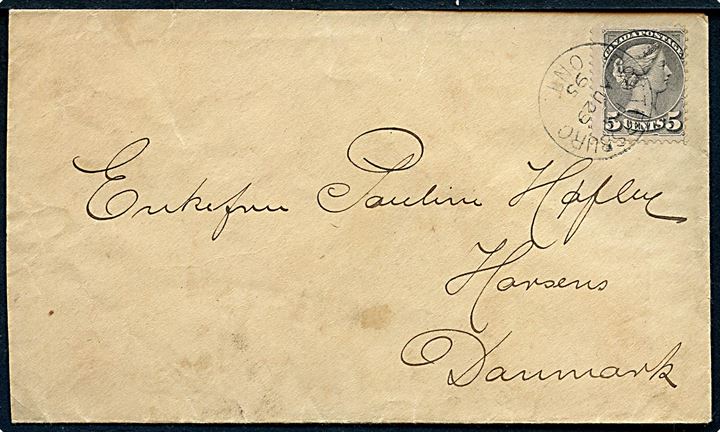 CANADA POSTAGE
5 CENTS 5
BURG ONT
AU 29
95
Enkefru Pauline Høffley
Horsens
Danmark